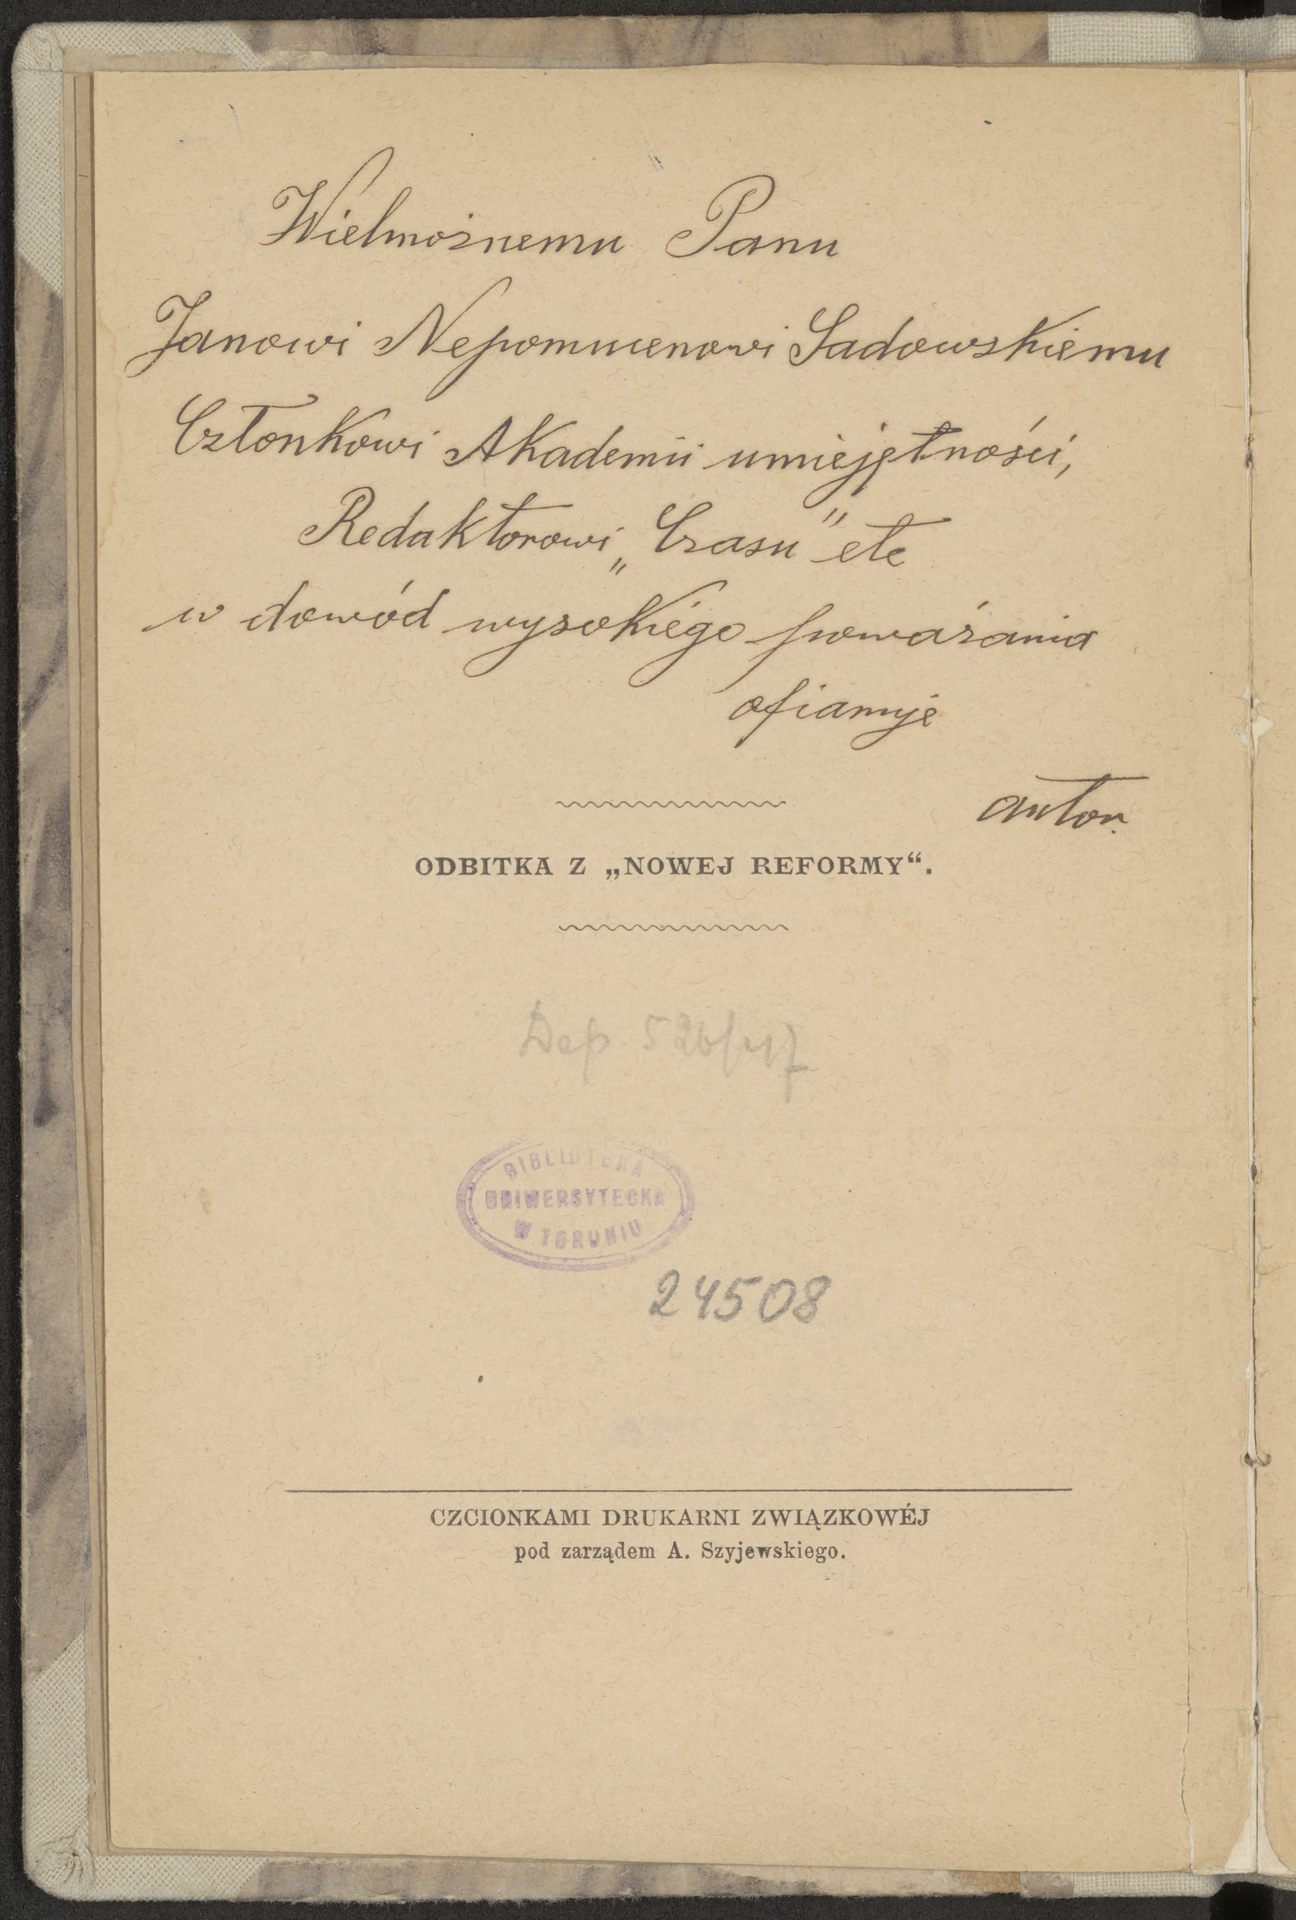 Wielmożnemu Panu
Janowi Nepomucenowi Sadowskiemu
Członkowi Akademii umiejętności,
Redaktorowi „Czasu" etc
w dowód wysokiégo poważania
ofiaruje
autor.
ODBITKA Z „NOWEJ REFORMY“.
Dep 526/47
BIBLIOTEKA
UNIWERSYTECKA
W TORUNIU
24508
CZCIONKAMI DRUKARNI ZWIĄZKOWÉJ
pod zarządem A. Szyjewskiego.